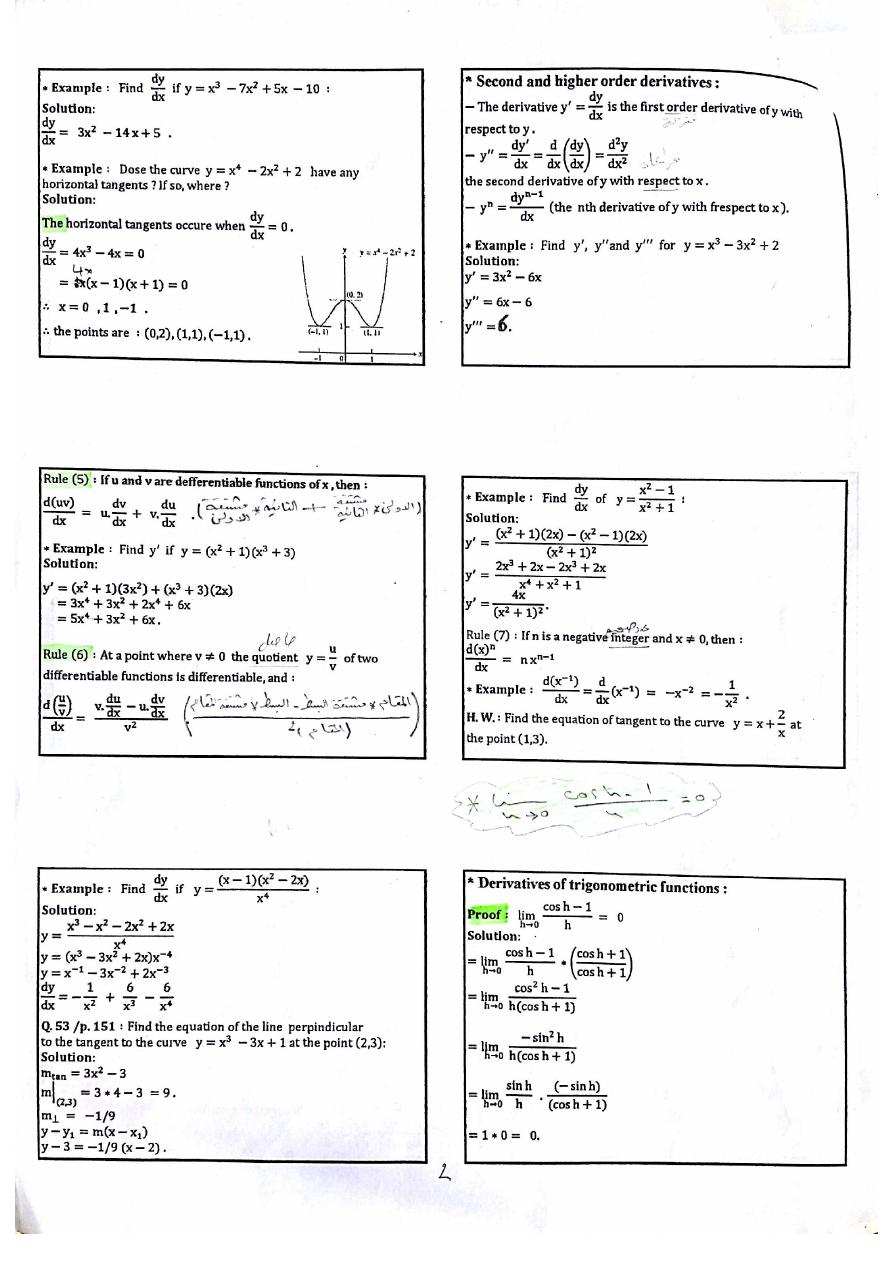 * Example : Find dy/dx if y = x³ − 7x² + 5x − 10 :
Solution:
dy/dx = 3x² − 14x + 5 .
* Example : Dose the curve y = x⁴ − 2x² + 2 have any
horizontal tangents ? If so, where ?
Solution:
The horizontal tangents occure when dy/dx = 0 .
dy/dx = 4x³ − 4x = 0
4x
= (x − 1)(x + 1) = 0
∴ x = 0 , 1 , −1 .
∴ the points are : (0,2), (1,1), (−1,1) .
y
y = x⁴ − 2x² + 2
(0, 2)
(−1, 1) 1 (1, 1)
−1 0 1 x
* Second and higher order derivatives :
− The derivative y′ = dy/dx is the first order derivative of y with
respect to y .
− y″ = dy′/dx = d/dx (dy/dx) = d²y/dx²
the second derivative of y with respect to x .
− yⁿ = dyⁿ⁻¹/dx (the nth derivative of y with frespect to x).
* Example : Find y′, y″and y‴ for y = x³ − 3x² + 2
Solution:
y′ = 3x² − 6x
y″ = 6x − 6
y‴ = 6.
Rule (5) : If u and v are defferentiable functions of x , then :
d(uv)/dx = u. dv/dx + v. du/dx . (الاولى × مشتقة الثانية + الثانية × مشتقة الاولى)
* Example : Find y′ if y = (x² + 1)(x³ + 3)
Solution:
y′ = (x² + 1)(3x²) + (x³ + 3)(2x)
= 3x⁴ + 3x² + 2x⁴ + 6x
= 5x⁴ + 3x² + 6x .
Rule (6) : At a point where v ≠ 0 the quotient y = u/v of two
differentiable functions is differentiable, and :
d(u/v)/dx = (v. du/dx − u. dv/dx)/v² (المقام × مشتقة البسط − البسط × مشتقة المقام)/(المقام)²
* Example : Find dy/dx of y = (x² − 1)/(x² + 1) :
Solution:
y′ = ((x² + 1)(2x) − (x² − 1)(2x))/(x² + 1)²
y′ = (2x³ + 2x − 2x³ + 2x)/(x⁴ + x² + 1)
y′ = 4x/(x² + 1)² .
Rule (7) : If n is a negative integer and x ≠ 0, then :
d(x)ⁿ/dx = n xⁿ⁻¹
* Example : d(x⁻¹)/dx = d/dx (x⁻¹) = −x⁻² = −1/x² .
H. W. : Find the equation of tangent to the curve y = x + 2/x at
the point (1,3).
* lim h→0 (cosh − 1)/h = 0
* Example : Find dy/dx if y = (x − 1)(x² − 2x)/x⁴ :
Solution:
y = (x³ − x² − 2x² + 2x)/x⁴
y = (x³ − 3x² + 2x)x⁻⁴
y = x⁻¹ − 3x⁻² + 2x⁻³
dy/dx = −1/x² + 6/x³ − 6/x⁴
Q. 53 /p. 151 : Find the equation of the line perpindicular
to the tangent to the curve y = x³ − 3x + 1 at the point (2,3):
Solution:
m_tan = 3x² − 3
m|(2,3) = 3 * 4 − 3 = 9 .
m⊥ = −1/9
y − y₁ = m(x − x₁)
y − 3 = −1/9 (x − 2) .
* Derivatives of trigonometric functions :
Proof : lim h→0 (cos h − 1)/h = 0
Solution: .
= lim h→0 (cos h − 1)/h * ((cos h + 1)/(cos h + 1))
= lim h→0 (cos² h − 1)/(h(cos h + 1))
= lim h→0 (− sin² h)/(h(cos h + 1))
= lim h→0 (sin h)/h . (− sin h)/(cos h + 1)
= 1 * 0 = 0.
2